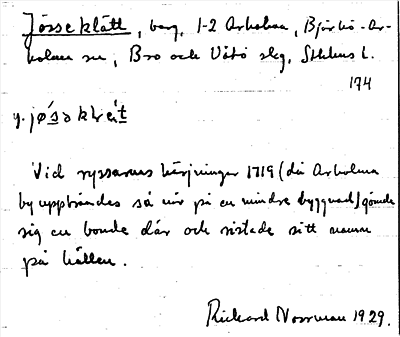 Jösseklätt, berg, 1-2 Arholma, Björkö-Ar-
holma sn, Bro och Vätö skg, Sthlms l.
174
y. jø´sə klet
Vid ryssarnas härjningar 1719 (då Arholma
by uppbrändes så när på en mindre byggnad) gömde
sig en bonde där och ristade sitt namn
på hällen.
Rickard Norrman 1929.